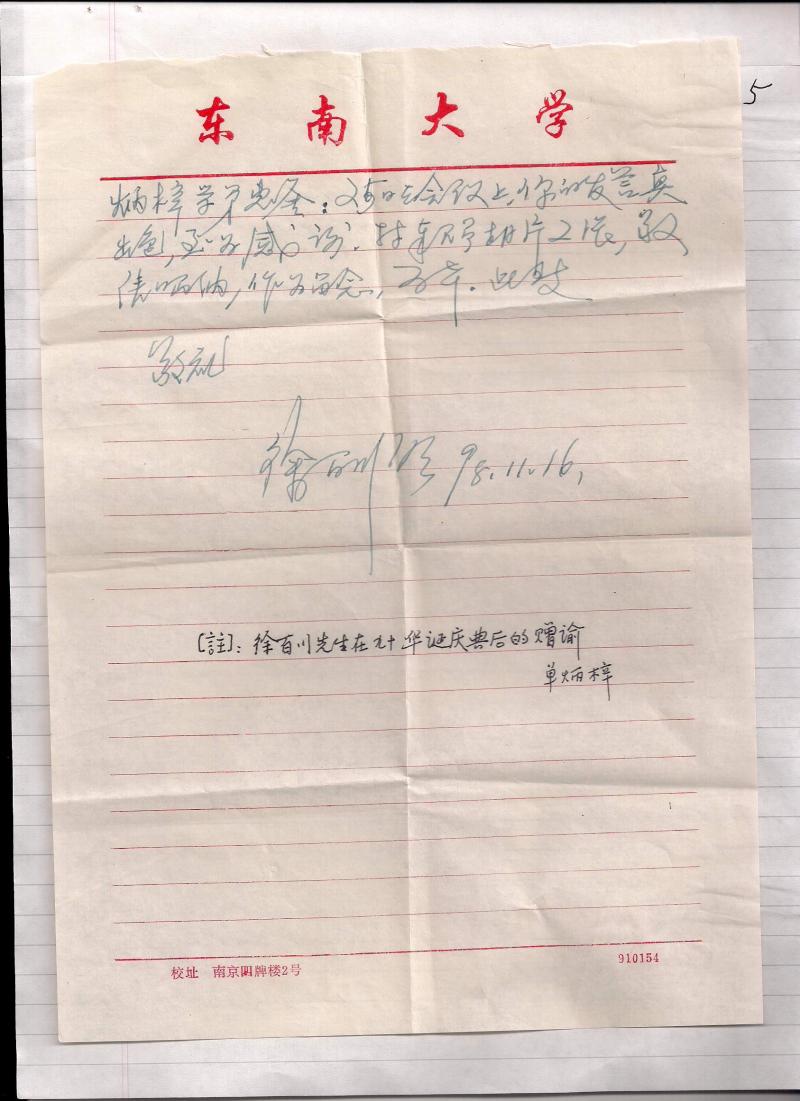 5
东南大学
炳梓学弟惠鉴：这次会议上，你的发言奥
出色，至为感谢。封奉照片2张，敬
请哂纳，作为留念，为幸。此致
敬礼
徐百川 98.11.16.
[註]：徐百川先生在九十华诞庆典后的赠谕
单炳梓
校址 南京四牌楼2号
910154